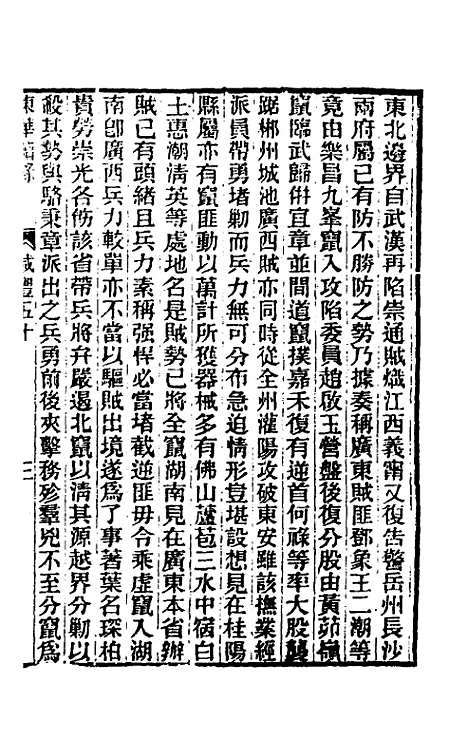 東北邊界自武漢再陷崇通賊熾江西義甯又復告警岳州長沙
兩府屬已有防不勝防之勢乃據奏稱廣東賊匪鄧象王二潮等
竟由樂昌九峯竄入攻陷委員趙啟玉營盤後復分股由黃茆嶺
竄臨武歸併宜章並間道竄撲嘉禾復有逆首何祿等率大股襲
踞郴州城池廣西賊亦同時從全州灌陽攻破東安雖該撫業經
派員帶勇堵勦而兵力無可分布急迫情形豈堪設想見在桂陽
縣屬亦有竄匪動以萬計所獲器械多有佛山蘆苞三水中宿白
土惠潮清英等處地名是賊勢已將全竄湖南見在廣東本省辦
賊已有頭緒且兵力素稱强悍必當堵截逆匪毋令乘虛竄入湖
南卽廣西兵力較單亦不當以驅賊出境遂爲了事著葉名琛柏
貴勞崇光各飭該省帶兵將弁嚴遏北竄以清其源越界分勦以
殺其勢與駱秉章派出之兵勇前後夾擊務殄羣兇不至分竄爲
東華續錄 咸豐五十 三